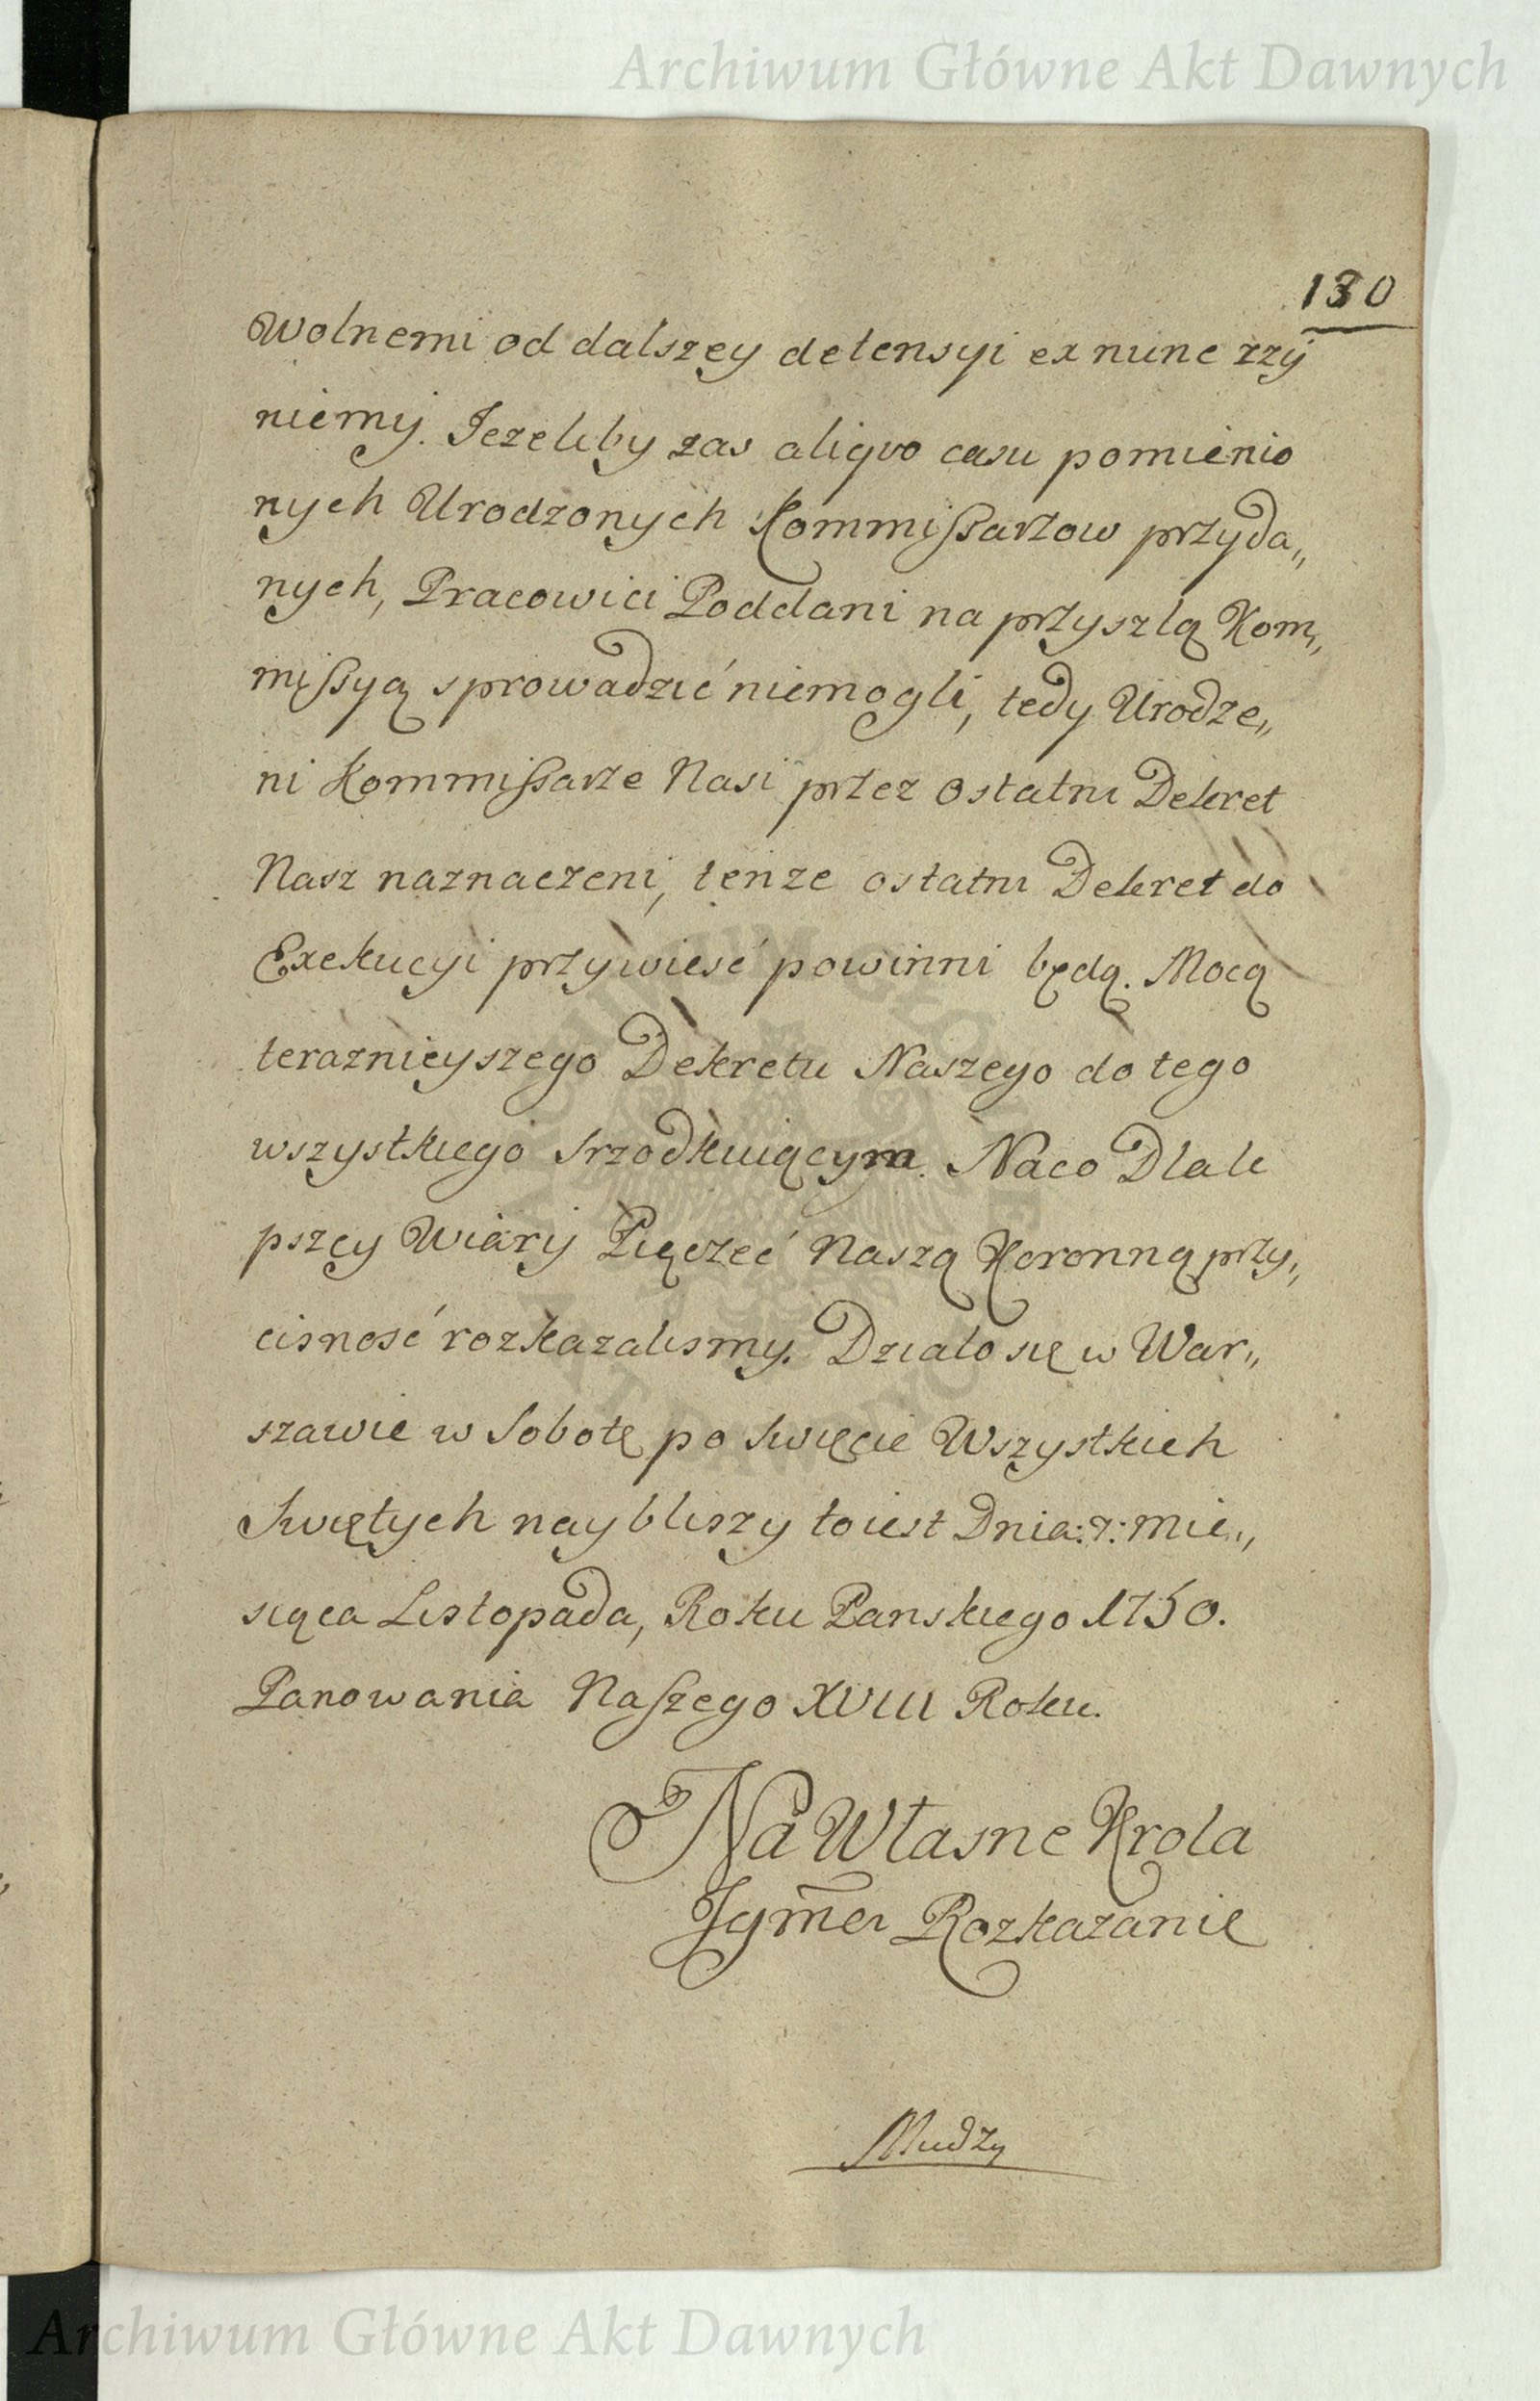 Archiwum Główne Akt Dawnych
130
Wolnemi od dalszey detensyi ex nunc czÿ
niemy. Jezeliby zas aliqvo casu pomienio
nych Urodzonych Kommißarzow przyda„
nych, Pracowici Poddani na przyszlą Kom„
mißyą sprowadzić niemogli, tedy Urodze„
ni Kommißarze Nasi przez ostatni Dekret
Nasz naznaczeni, tenze ostatni Dekret do
Exekucyi przywiesć powinni będą. Mocą
teraznieyszego Dekretu Naszego do tego
wszystkiego srzodkuiącym. Naco Dla le
pszey Wiary Pięczeć Naszą Koronną przy„
cisnosć rozkazalismy. Dzialo się w War„
szawie w Sobotę po Swięcie Wszystkich
Swiętych naybliszy toiest Dnia: 7: Mie„
siąca Listopada, Roku Panskiego 1750.
Panowania Naszego XVIII Roku.
Na Własne Krola
Jgmci Rozkazanie
Archiwum Główne Akt Dawnych